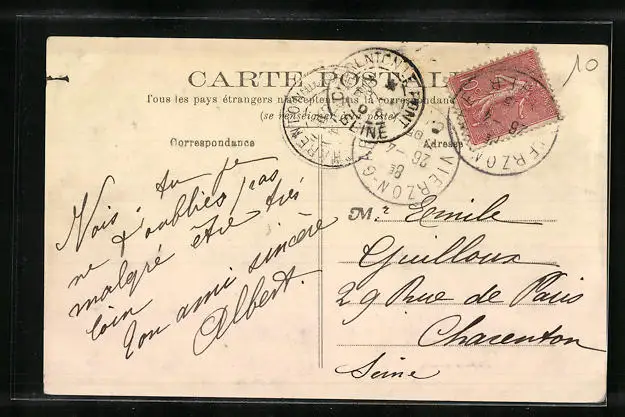 10
CARTE POSTALE
Tous les pays étrangers n'acceptent pas la correspondance
(se renseigner à la poste)
Correspondance
Adresse
CHARENTON-LE-PONT
SEINE
VIERZON-GARE
26
VIERZON
10
Vois tu je
ne t'oublies pas
malgré être très
loin
Ton ami sincère
Albert.
M.r Emile
Guilloux
29 Rue de Paris
Charenton
Seine